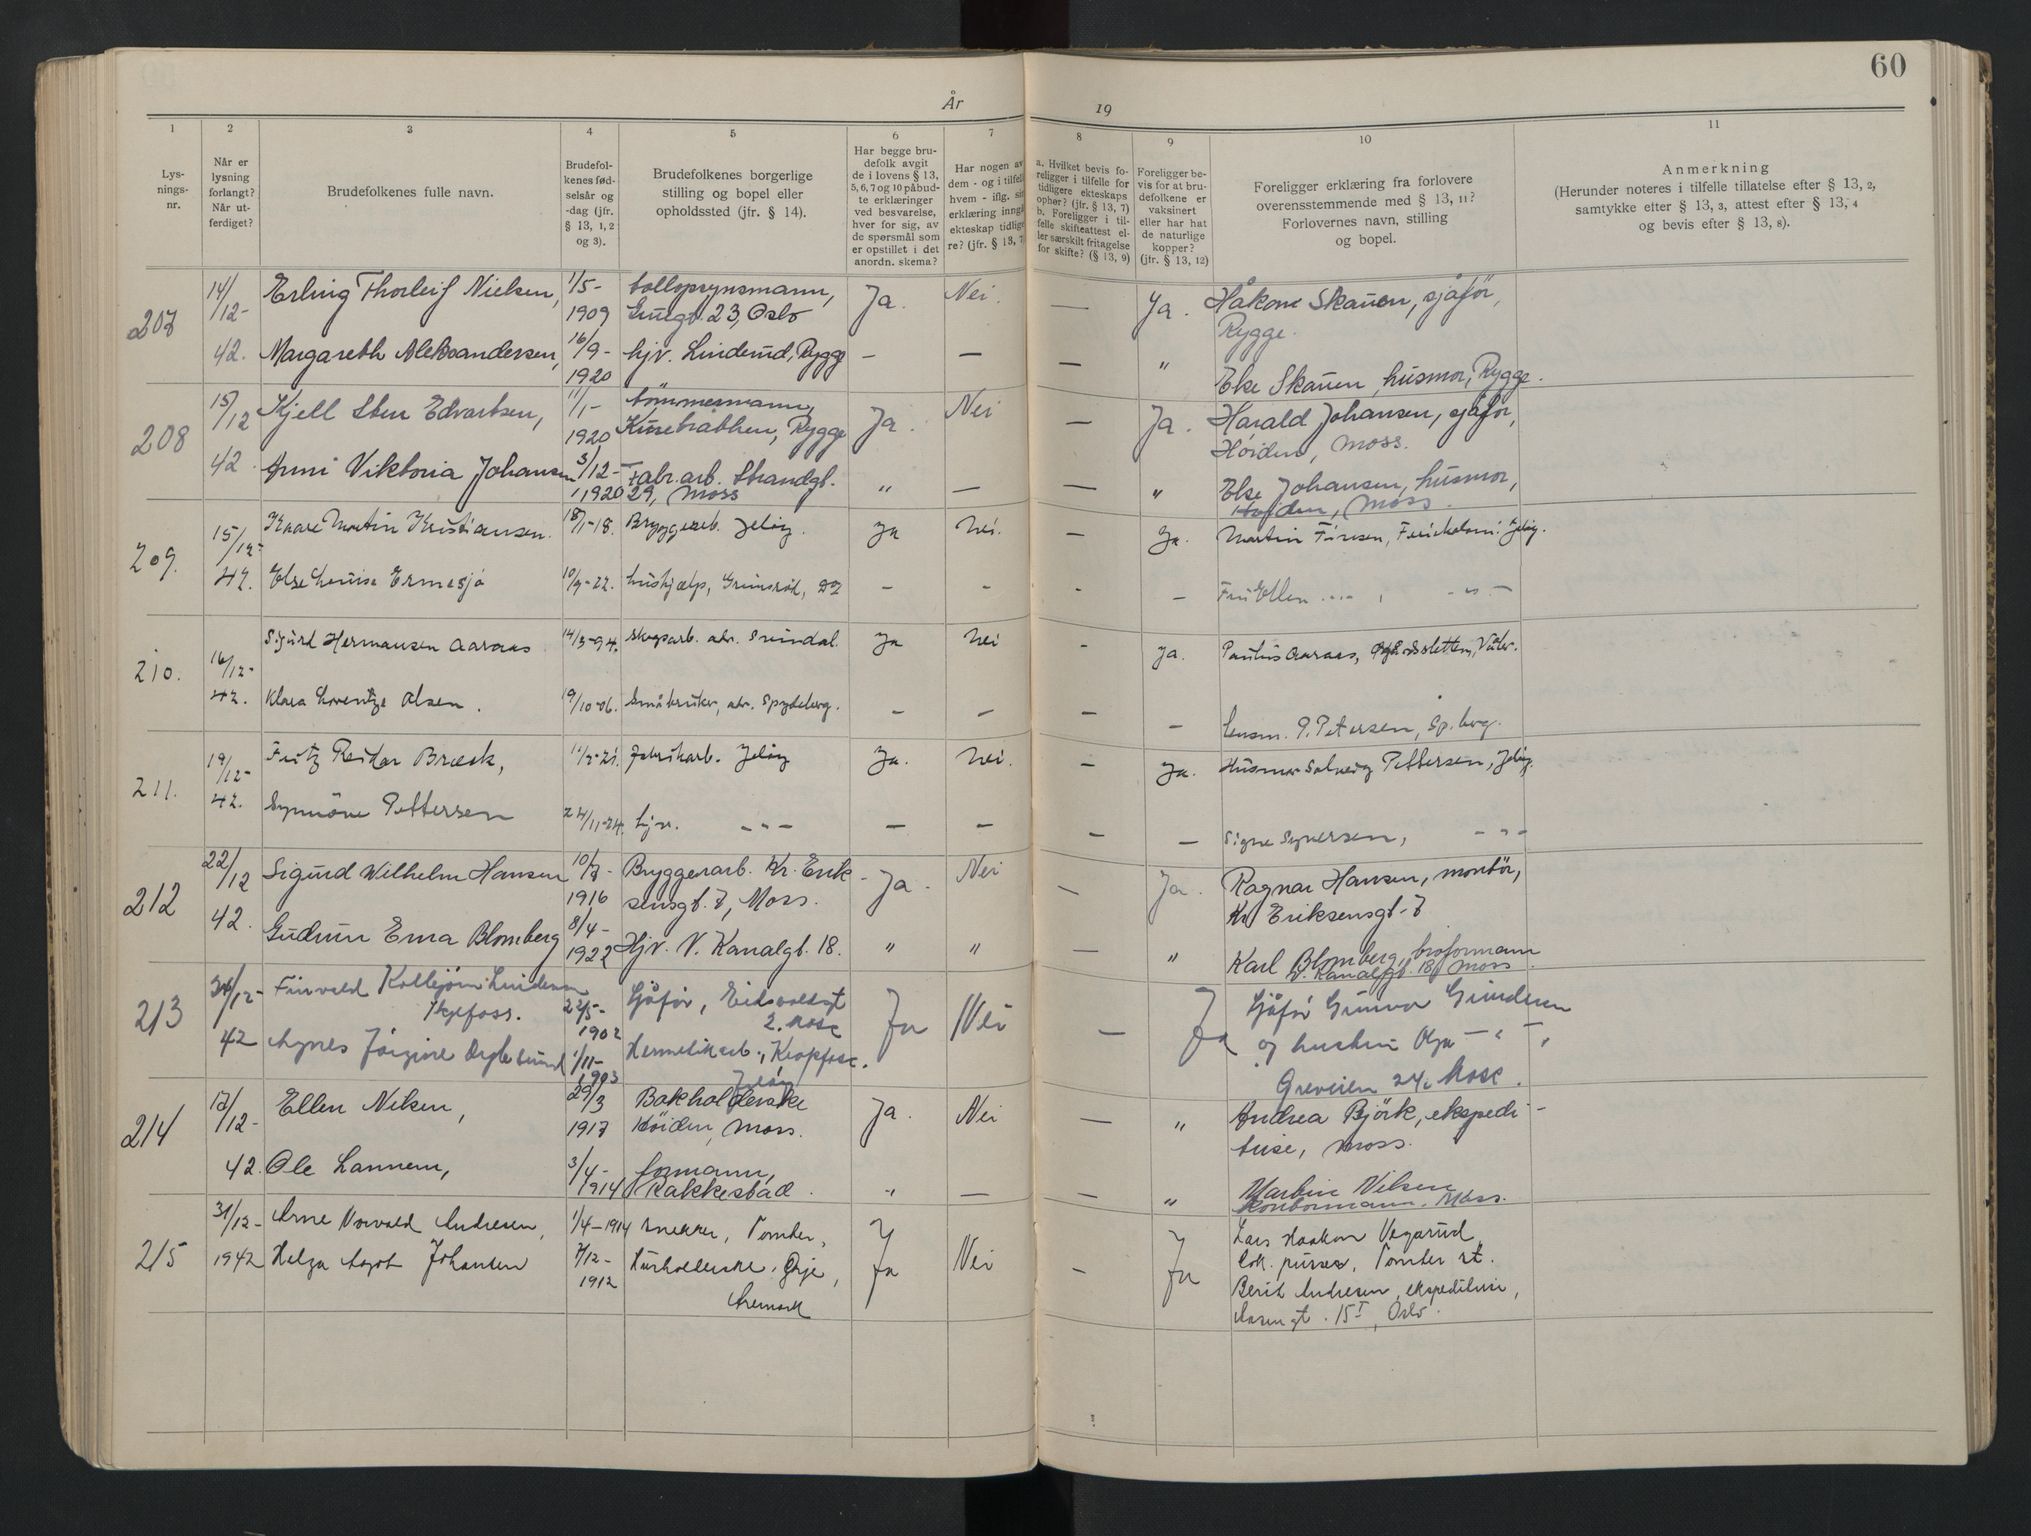 60
År 19
1 2 3 4 5 6 7 8 9 10 11
Lys-
nings-
nr.
Når er
lysning
forlangt?
Når ut-
ferdiget?
Brudefolkenes fulle navn.
Brudefol-
kenes fød-
selsår og
-dag (jfr.
§ 13, 1, 2
og 3).
Brudefolkenes borgerlige
stilling og bopel eller
opholdssted (jfr. § 14).
Har begge bru-
defolk avgit
de i lovens § 13,
5, 6, 7 og 10 påbud-
te erklæringer
ved besvarelse,
hver for sig, av
de spørsmål som
er opstillet i det
anordn. skema?
Har nogen av
dem - og i tilfell
hvem - iflg. sin
erklæring inngå
ekteskap tidlige
re? (jfr. § 13, 7
a. Hvilket bevis fo-
religger i tilfelle for
tidligere ekteskaps
ophør? (jfr. § 13, 7)
b. Foreligger i til-
felle skifteattest el-
ler særskilt fritagelse
for skifte? (§ 13, 9)
Foreligger be-
vis for at bru-
defolkene er
vaksinert
eller har hat
de naturlige
kopper?
(jfr. § 13, 12)
Foreligger erklæring fra forlovere
overensstemmende med § 13, 11?
Forlovernes navn, stilling
og bopel.
Anmerkning
(Herunder noteres i tilfelle tillatelse efter § 13, 2,
samtykke efter § 13, 3, attest efter § 13, 4
og bevis efter § 13, 8).
207 14/12- Erling Thorleif Nielsen, 1/5-1909 tollopsynsmann, 23, Oslo Ja. Nei. — Ja. Håkon Skauen, sjåfør, Rygge.
42. Margareth Aleksandersen, 16/9-1920 hjv. Linderud, Rygge — — — " Else Skauen, husmor, Rygge.
208 15/12 Kjell Sten Edvartsen, 11/1-1920 tømmermann, Rygge Ja. Nei — Ja. Harald Johansen, sjåfør, Høiden, Moss.
42. Anni Viktoria Johansen 3/12-1920 Fabr.arb. Strandgt. 29, Moss " — — " Else Johansen, husmor, Høiden, Moss.
209. 15/12- Kaare Martin Kristiansen. 18/1-18. Bryggearb. Jeløy. Ja Nei. — Ja. Martin Jeløy.
42. Else Louise Ermesjø 10/9-22. hushjælp, Grimsrød, — - - — Fru Ellen
210. 16/12- Sigurd Hermansen Aaraas 14/3-94. Skogsarb. adr. Svindal. Ja Nei - Ja. Paulus Aaraas, Våler.
42. Klara Lorentze Olsen. 19/10-06. Småbruker, adr. Spydeberg. — — — — Lensm. P. Petersen, Sp.berg.
211. 19/12- Fritz Reidar Bræck, Fabrikarb. Jeløy Ja. Nei. — Ja. Husmor Solveig Pettersen, Jeløy.
42. Synnöve Pettersen 24/11-24. hjv. — " — — — — — Signe Syversen, — " —
212 22/12 Sigurd Wilhelm Hansen 10/7-1916 Bryggeriarb. Kr. Erik-sensgt. 7, Moss. Ja. Nei — Ja. Ragnar Hansen, montör, Kr Eriksensgt-7
42. Gudrun Erna Blomberg 8/4-1922 Hjv. V. Kanalgt. 18. " " — " Karl Blomberg, broformann V. Kanalgt. 18, Moss
213 /12- Finvald 22/5-1902 Sjåför, Eidsvoldsgt 2. Moss Ja Nei — Ja Sjåför Gunnar Gundersen
42 Agnes 1/11-1903 Hermetikarb., Jeløy og hustru Olga — " —,
Greveien 24. Moss.
214 17/12- Ellen Nilsen, 29/3 1917 Bokholderske Høiden, Moss. Ja. Nei — " Andrea Björk, ekspedi-trise, Moss.
42. Ole Lannem, 3/4-1914 formann, Rakkestad. " — — " Martin Nilsen Kontormann, Moss.
215 31/12- Arne Norvald Andresen, 1/4-1914 snekker, Tomter, J
1942 Helga Aagot Johansen 7/12-1912 Husholderske, Ørje, Aremark Ja Nei — Ja Lars Haakon Vegarud
Lok. pusser, Tomter st.
Berit Andresen, ekspeditrise,
15 I, Oslo.